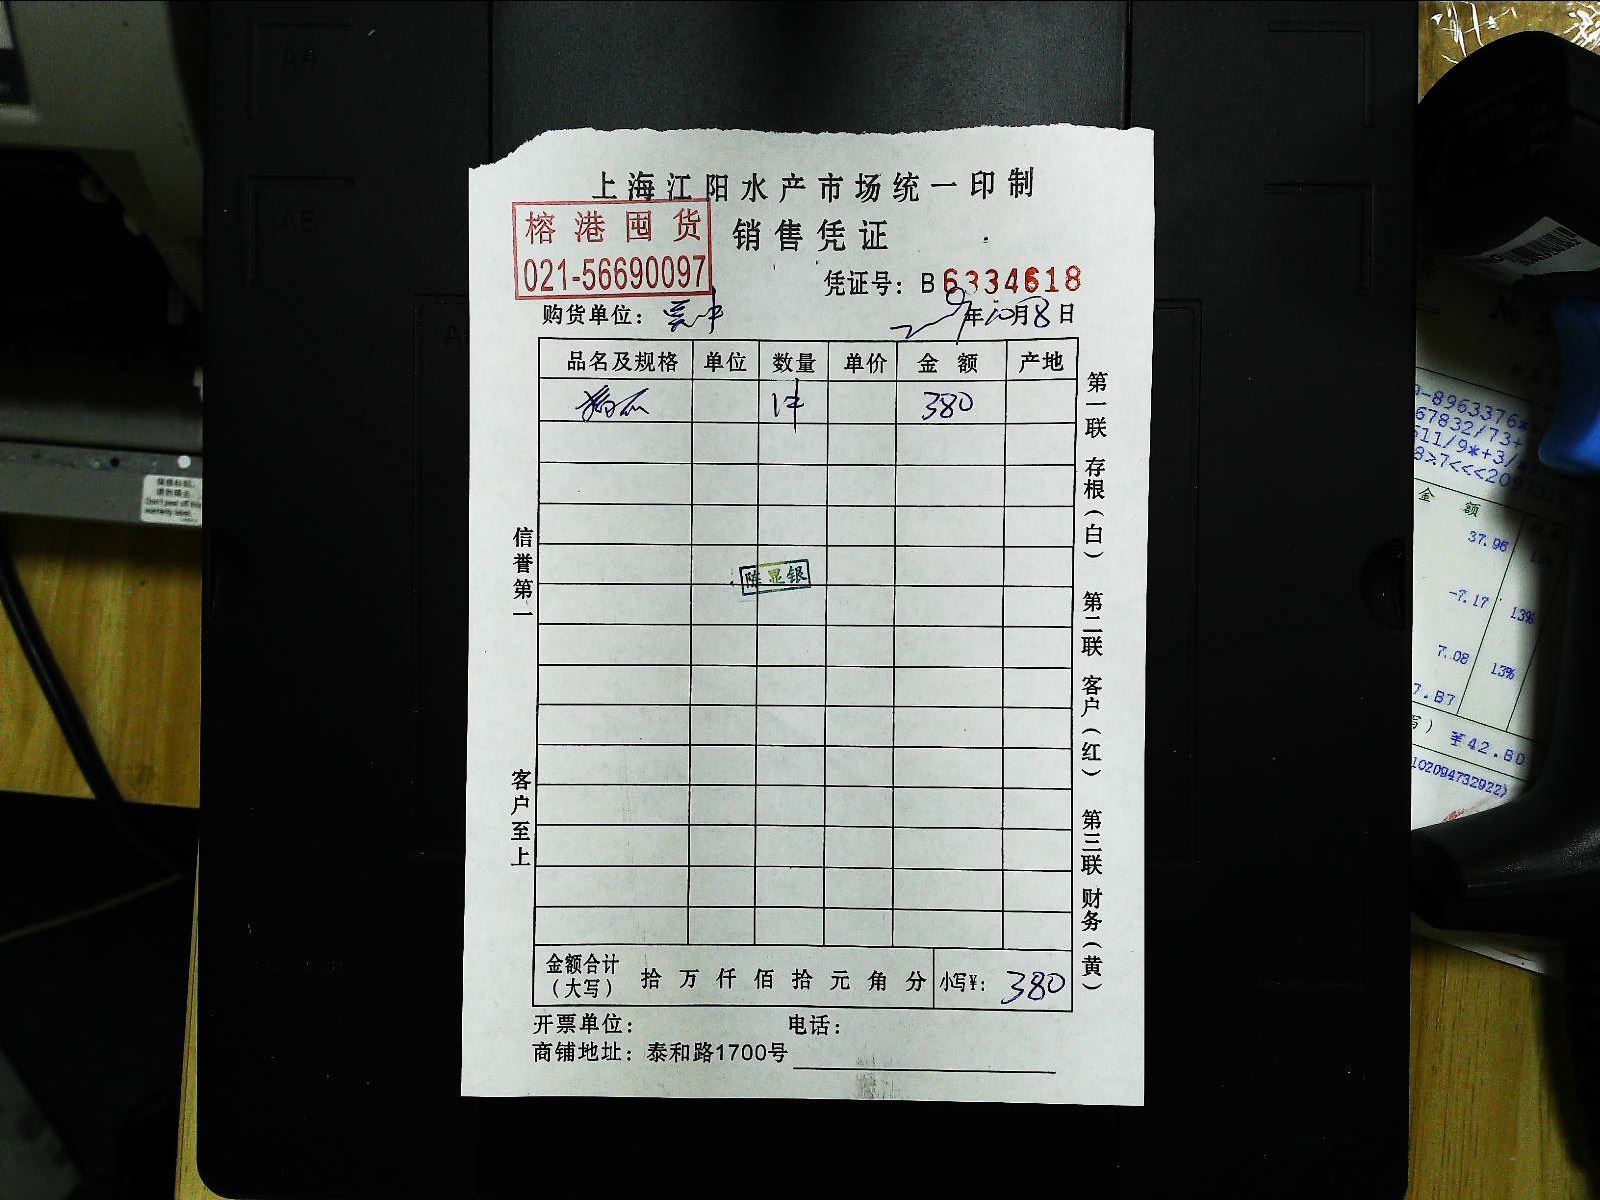 上海江阳水产市场统一印制
榕港囤货
销售凭证
021-56690097
凭证号：B6334618
购货单位：
年10月8日
品名及规格 单位 数量 单价 金额 产地
1件 380
第一联 存根（白） 第二联 客户（红） 第三联 财务（黄）
信誉第一
客户至上
陈显银
金额合计（大写） 拾 万 仟 佰 拾 元 角 分 小写¥：380
开票单位： 电话：
商铺地址：泰和路1700号
A4
A5
金 额
37.96
-7.17 13%
7.08 13%
7.87
¥42.80
102094732922)